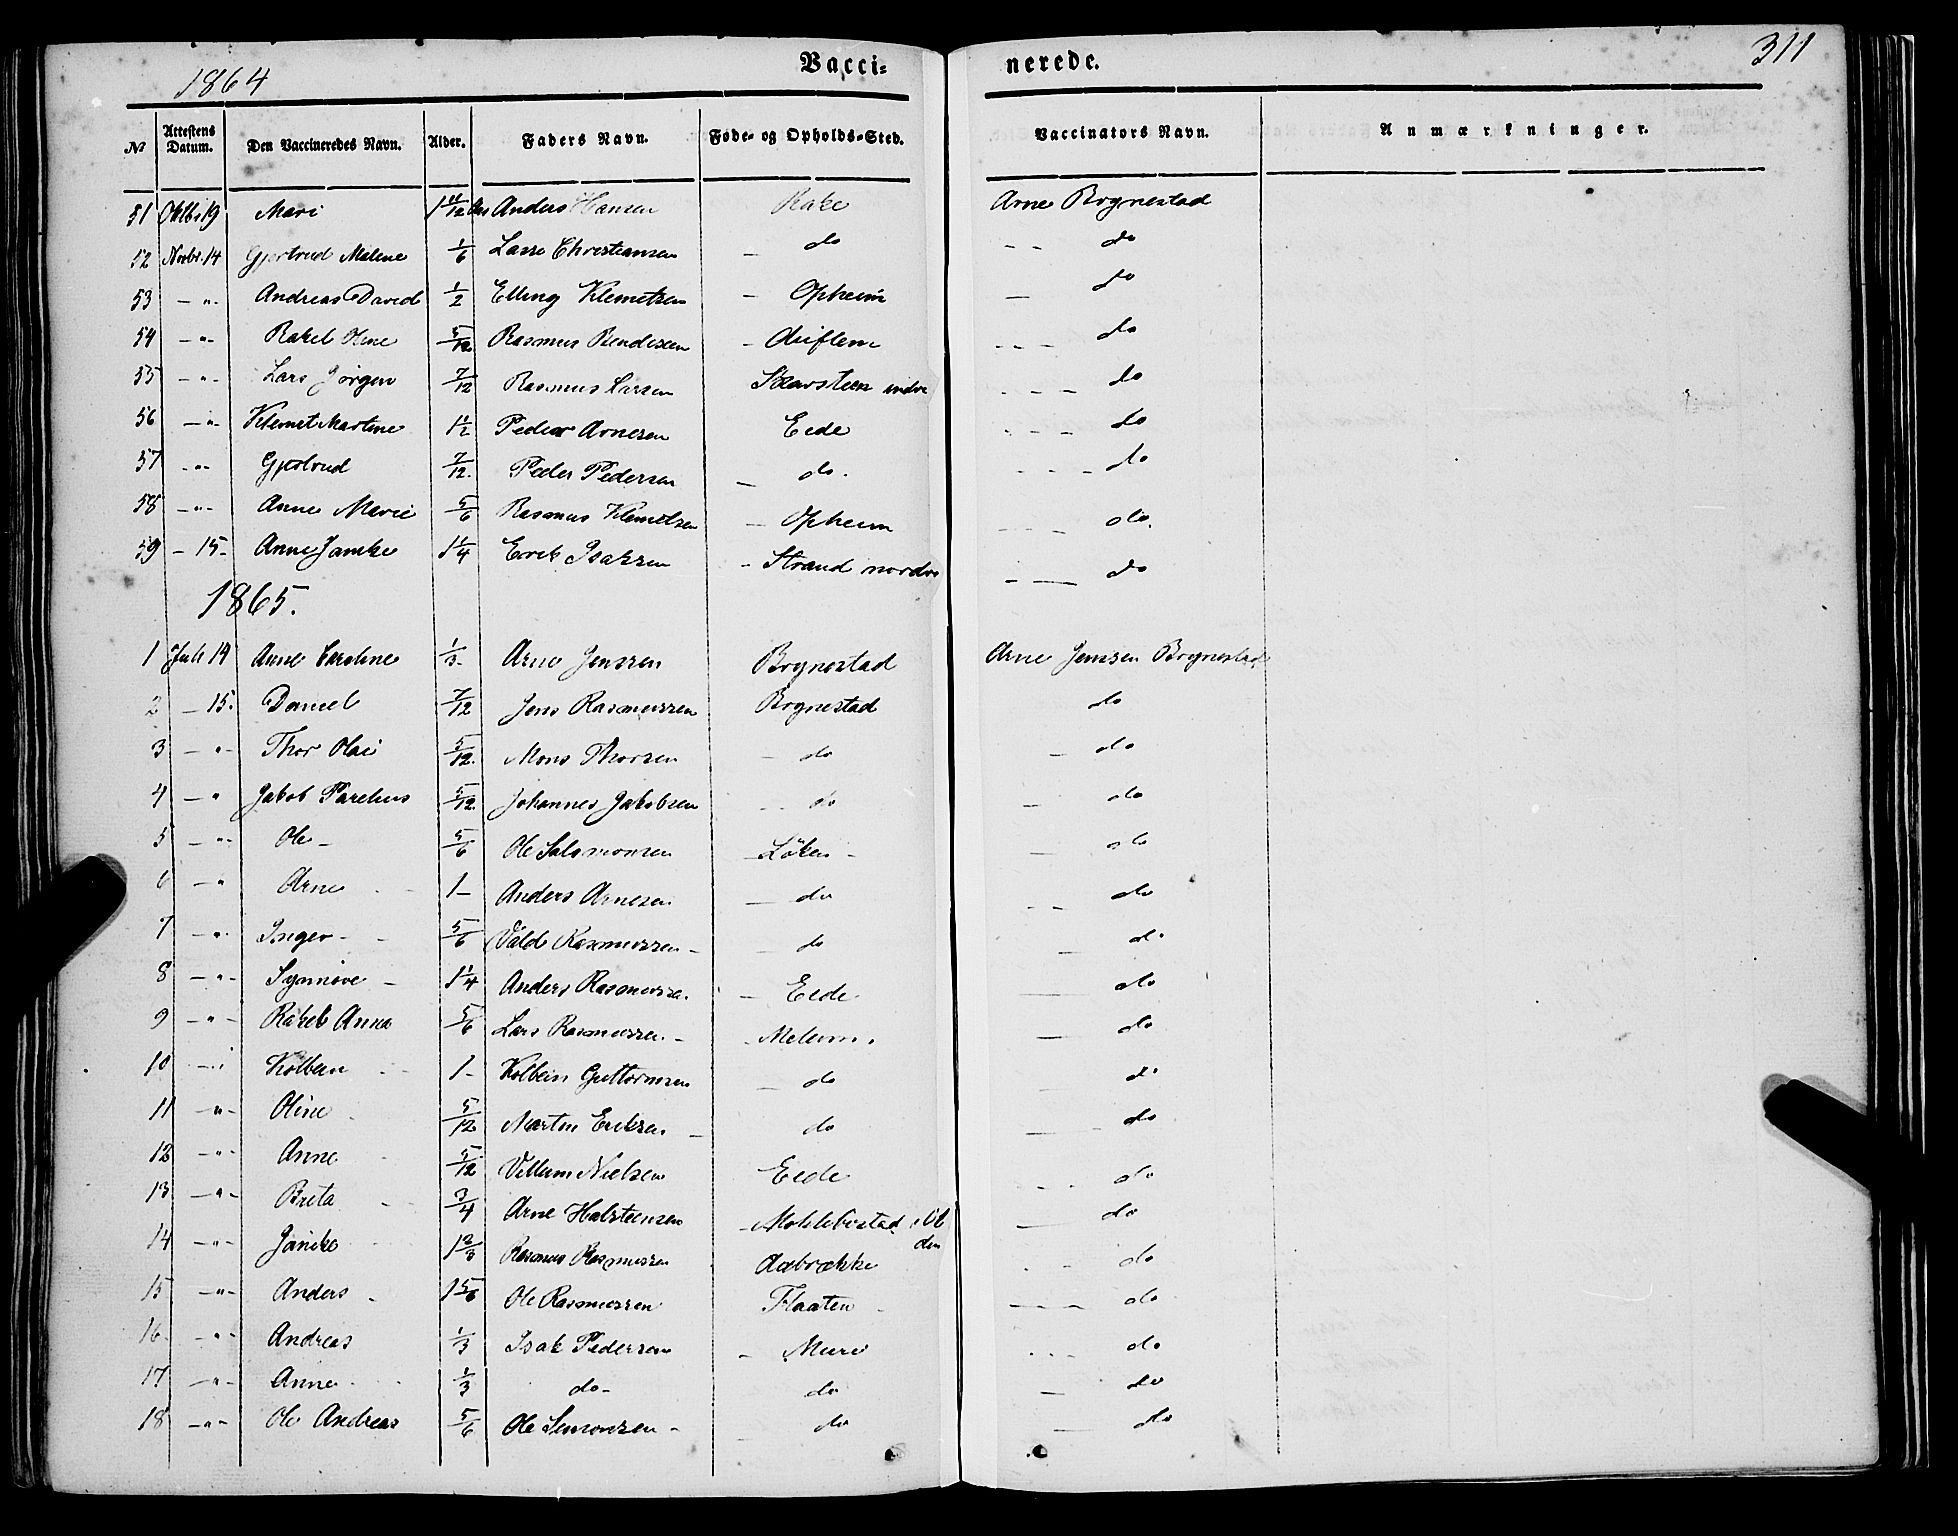 1864 Vacci- nerede. 311
№ Attestens Datum. Den Vaccineredes Navn. Alder. Faders Navn. Føde- og Opholds-Sted. Vaccinators Navn. Anmærkninger.
51 Oktbr 19 Mari 1 11/12 Anders Hansen Rake Arne Brynestad
52 Novbr. 14 Gjertrud Malene 1/6 Lasse Christiansen - do - - do
53 - " - Andreas David 1/2 Elling Klemetsen - Opheim - do
54 - " - Rakel Oline 5/12 Rasmus Bendixen - - - - do
55 - " - Lars Jørgen 7/12 Rasmus Larsen Skarsteen indre - - - do
56 - " - Klemet Martine 1 1/2 Peder Arnesen Eide - - - do
57 - " - Gjertrud 7/12. Peder Pedersen - do. - - - - do
58 - " - Anne Marie 5/6 Rasmus Klemetsen - Opheim - - - do.
59 - 15 - Anne Janike 1 1/4 Erik Isaksen - Strand nordre - - do
1865.
1 Juli 14 Anne Caroline 1/3 - Arne Jensen Brynestad Arne Jensen Brynestad
2 - 15. Daniel 7/12 Jens Rasmussen Brynestad do
3 - " - Thor Olai 5/12. Mons Thorsen - do - do
4 - " Jakob Parelius 5/12. Johannes Jakobsen - - do - do
5 - " - Ole - 5/6 Ole Salomonsen - Löken - - do
6 - " Arne 1 - Anders Arnesen - do - - do
7 - " - Inger - 5/6 Rasmussen - - do - do
8 - " - Synnöve - 1 1/4 Anders Rasmussen. - Eide. - do
9 - " - Rakel Anna 5/6 Lars Rasmussen. - - Melum. - do
10 - " Kolbein 1 - Kolbein Guttormsen - do - do
11 - " - Oline 5/12 Martin Eriksen - do - do
12 - " - Anne 5/12 Villum Nielsen Eide - - do
13 - " - Brita 3/4 Arne Halsteensen - i Ol- - do
den
14 - " - Janike 1 2/3 Rasmus Rasmussen Aabrække - do
15 - " - Anders - 1 5/6 Ole Rasmussen Flaaten - - - - do
16. - " - Andreas 1/3 Isak Pedersen - Muri - - - do
17 - " - Anne 1/3 do - do - do
18 - " - Ole Andreas 5/6 Ole Simonsen - do - do